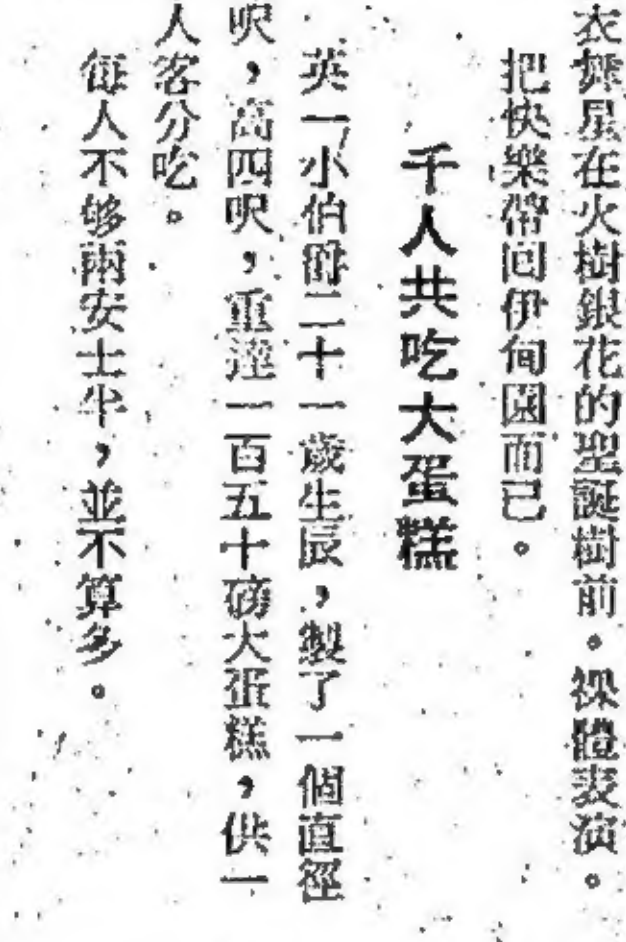 衣舞星在火樹銀花的聖誕樹前。裸體表演。
把快樂帶回伊甸園而已。
千人共吃大蛋糕
英一小伯爵二十一歲生辰,製了一個直徑
呎,高四呎,重達一百五十磅大蛋糕,供一
人客分吃。
每人不够兩安士半,並不算多。